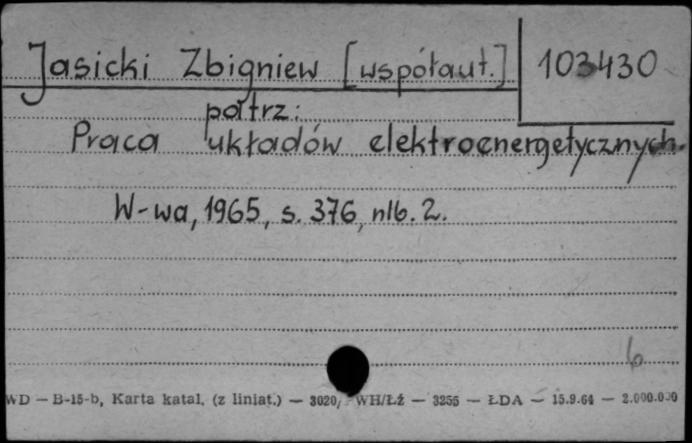 Jasicki Zbigniew [współaut.] 103430
patrz:
Praca układów elektroenergetycznych.
W-wa, 1965, s. 376, nlb. 2.
6
WD — B-15-b, Karta katal. (z liniat.) — 3020, WH/Łź — 3255 — ŁDA — 15.9.64 — 2.000.000